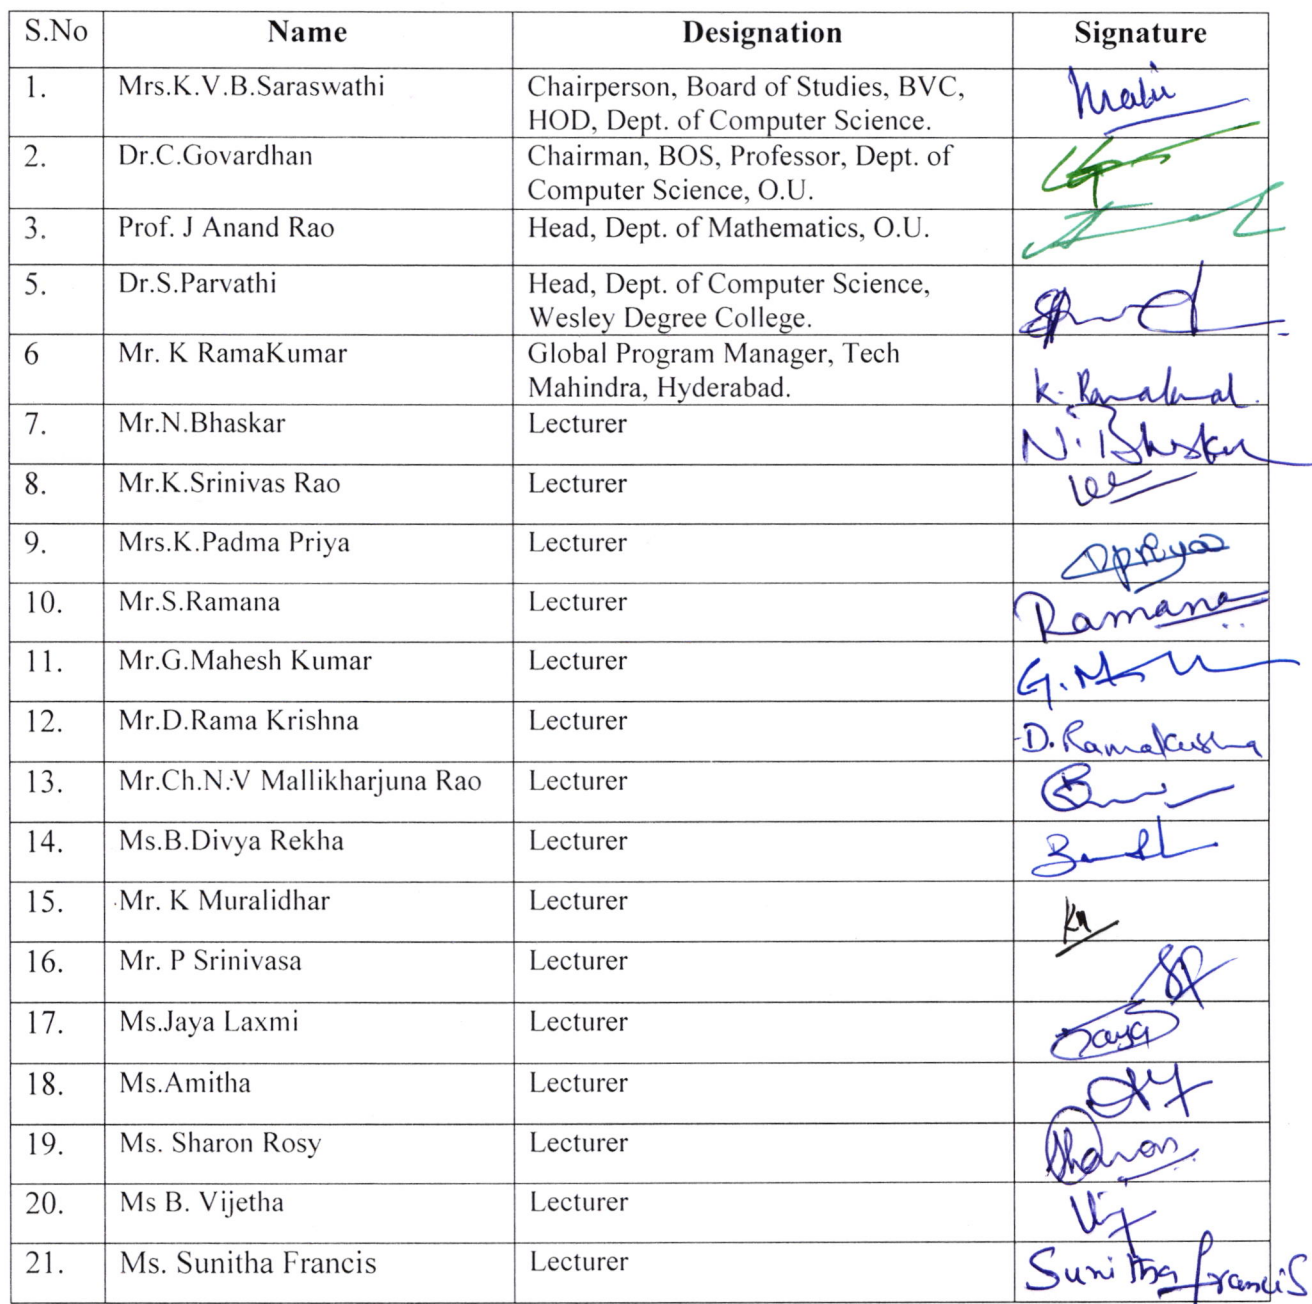 S.No Name Designation Signature
1. Mrs.K.V.B.Saraswathi Chairperson, Board of Studies, BVC,
HOD, Dept. of Computer Science.
2. Dr.C.Govardhan Chairman, BOS, Professor, Dept. of
Computer Science, O.U.
3. Prof. J Anand Rao Head, Dept. of Mathematics, O.U.
5. Dr.S.Parvathi Head, Dept. of Computer Science,
Wesley Degree College.
6 Mr. K RamaKumar Global Program Manager, Tech
Mahindra, Hyderabad.
7. Mr.N.Bhaskar Lecturer N. Bhskar
8. Mr.K.Srinivas Rao Lecturer
9. Mrs.K.Padma Priya Lecturer
10. Mr.S.Ramana Lecturer Ramana
11. Mr.G.Mahesh Kumar Lecturer
12. Mr.D.Rama Krishna Lecturer D. Ramakrishna
13. Mr.Ch.N.V Mallikharjuna Rao Lecturer
14. Ms.B.Divya Rekha Lecturer
15. Mr. K Muralidhar Lecturer
16. Mr. P Srinivasa Lecturer
17. Ms.Jaya Laxmi Lecturer Jaya
18. Ms.Amitha Lecturer
19. Ms. Sharon Rosy Lecturer Sharon
20. Ms B. Vijetha Lecturer
21. Ms. Sunitha Francis Lecturer Sunitha Francis